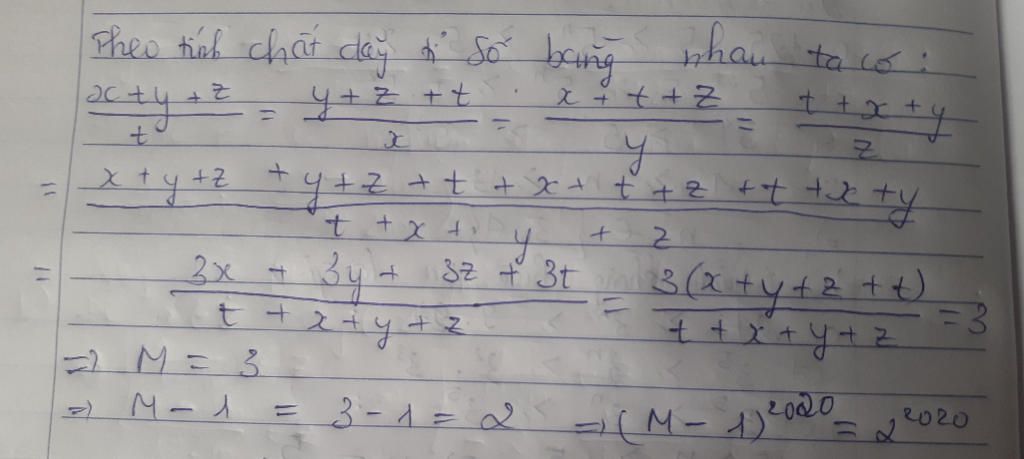 Theo tính chất dãy tỉ số bằng nhau ta có:
(x+y+z)/t = (y+z+t)/x = (x+t+z)/y = (t+x+y)/z
= (x+y+z+y+z+t+x+t+z+t+x+y)/(t+x+y+z)
= (3x+3y+3z+3t)/(t+x+y+z) = 3(x+y+z+t)/(t+x+y+z) = 3
=> M = 3
=> M-1 = 3-1 = 2 => (M-1)^2020 = 2^2020